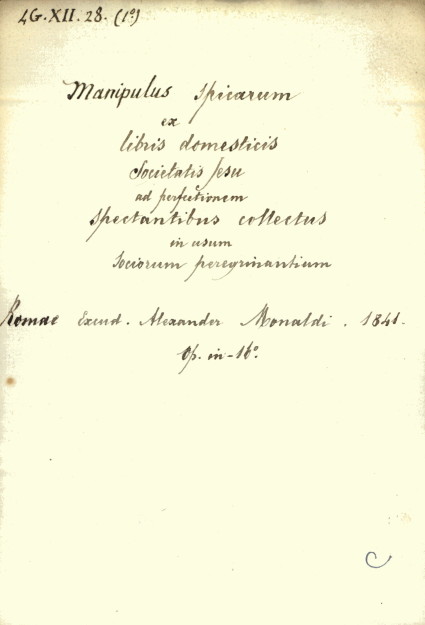 4G.XII.28. (1º)
Manipulus spicarum
ex
libris domesticis
Societatis Jesu
ad perfectionem
spectantibus collectus
in usum
Sociorum peregrinantium
Romae Excud. Alexander Monaldi. 1841.
Op. in-16º.
C